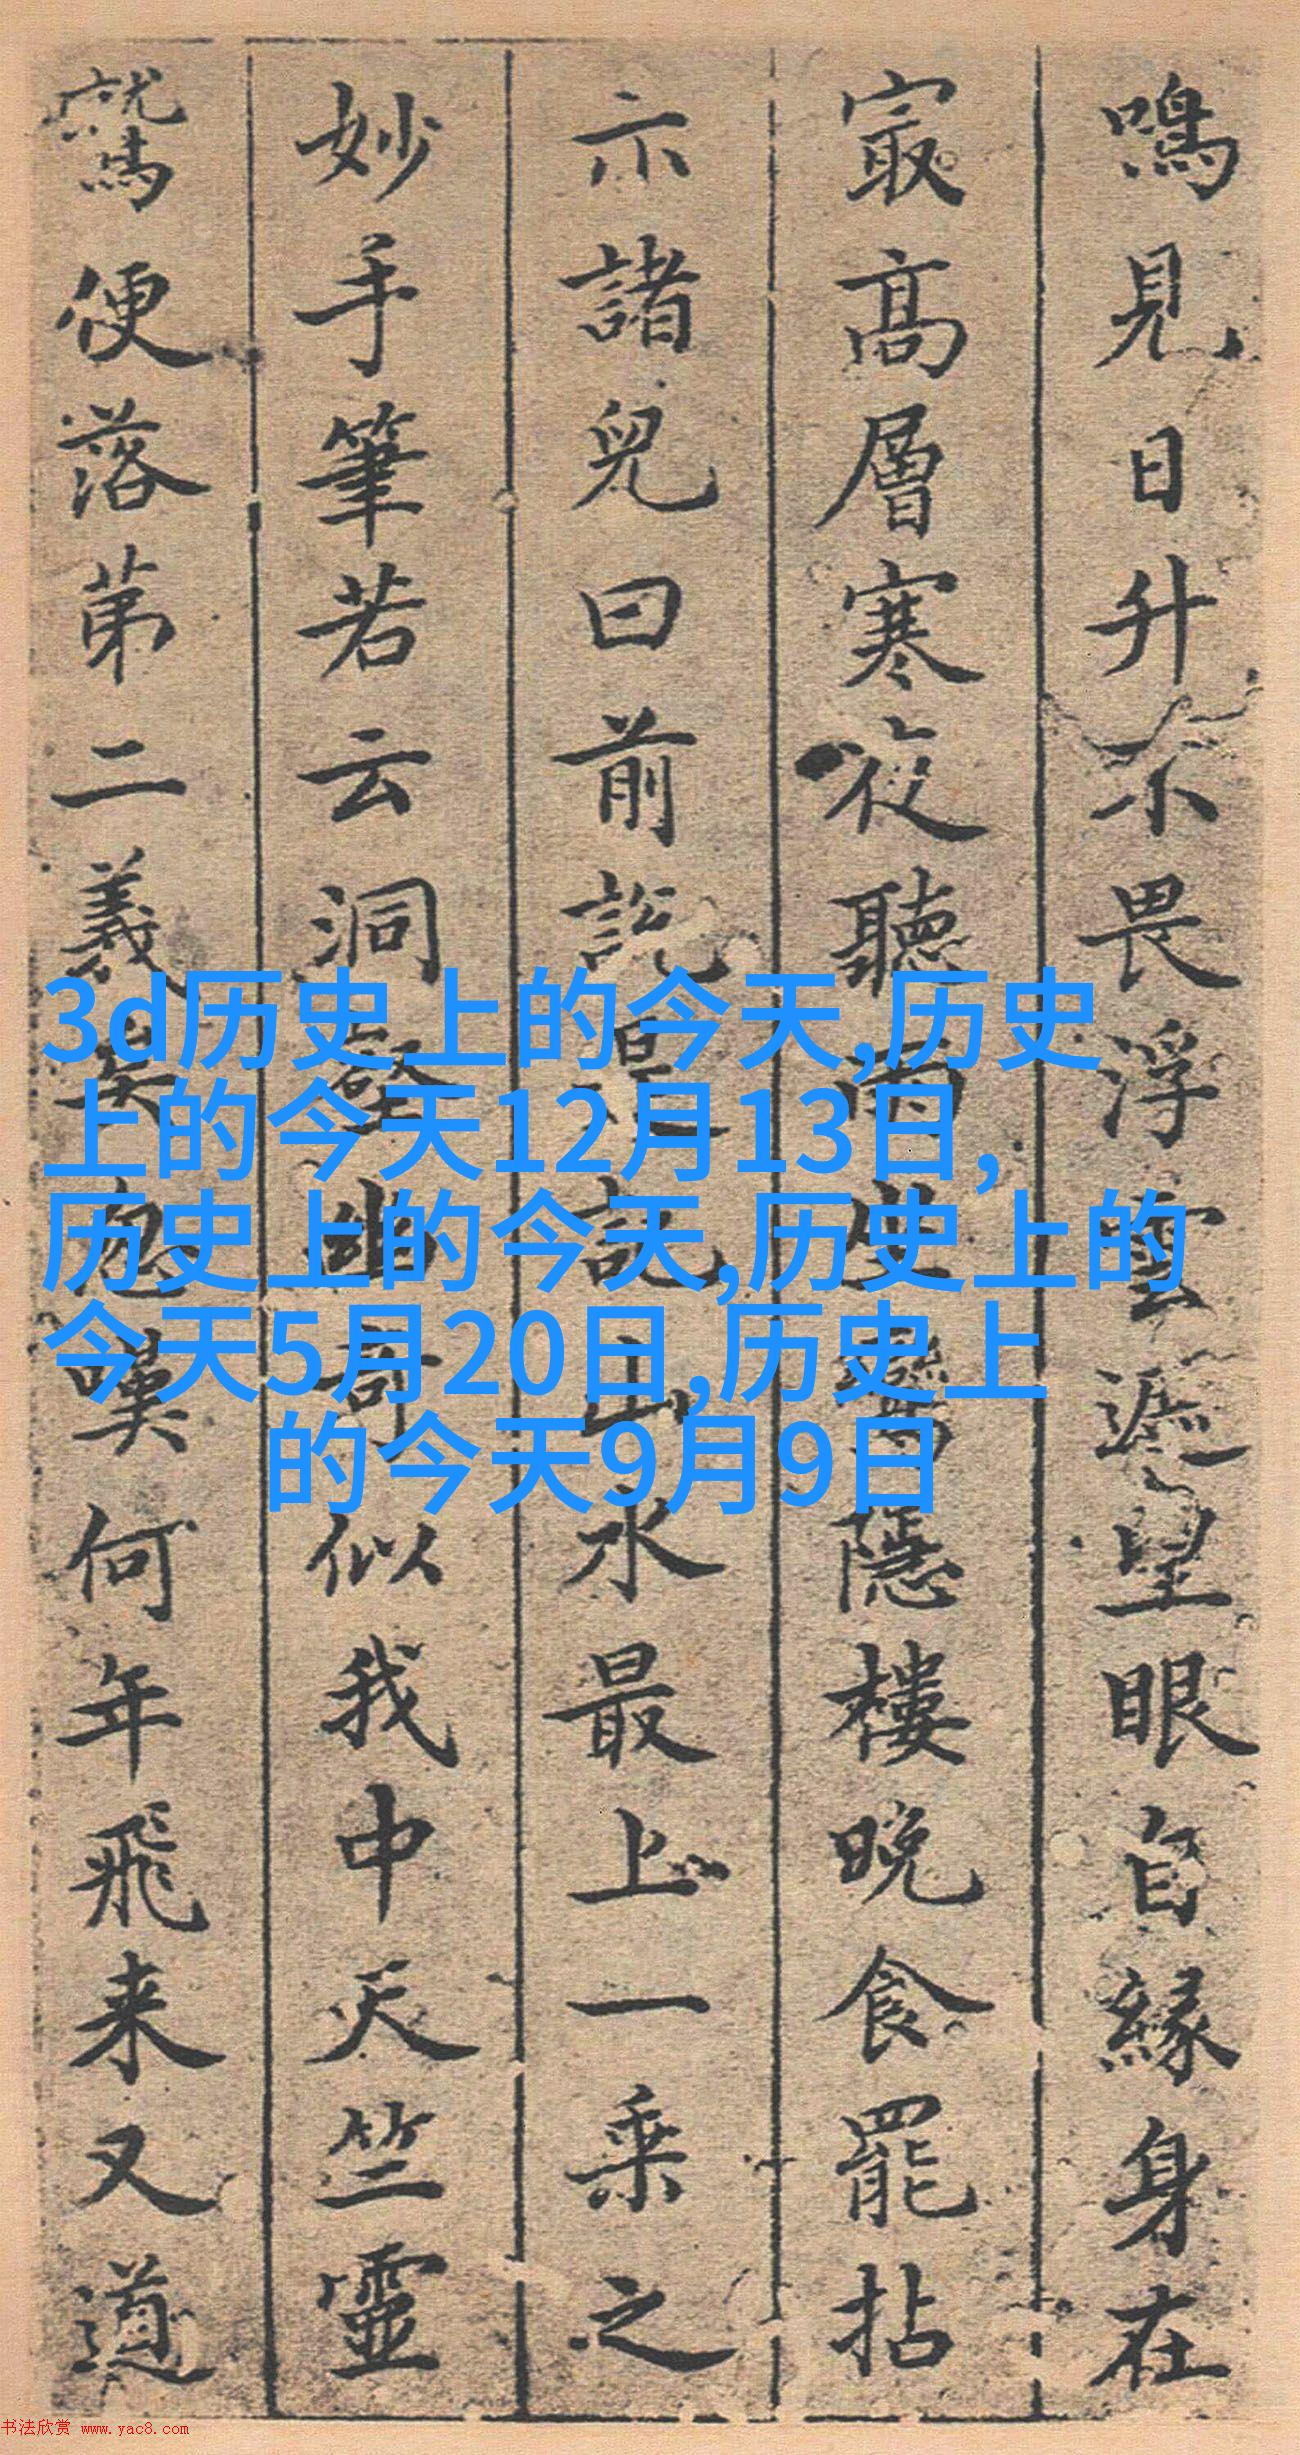 鳴見日升不畏浮雲遮望眼自緣身在
最高層寒夜聽雨
隱樓晚食罷拈
示諸兒曰前說是說山水最上一乘之
妙手筆若云洞壑幽奇似我中天竺靈
鷲便落第二義矣忽嘆何年飛来又道
3d历史上的今天,历史
上的今天12月13日,
历史上的今天,历史上的
今天5月20日,历史上
的今天9月9日
书法欣赏 www.yac8.com